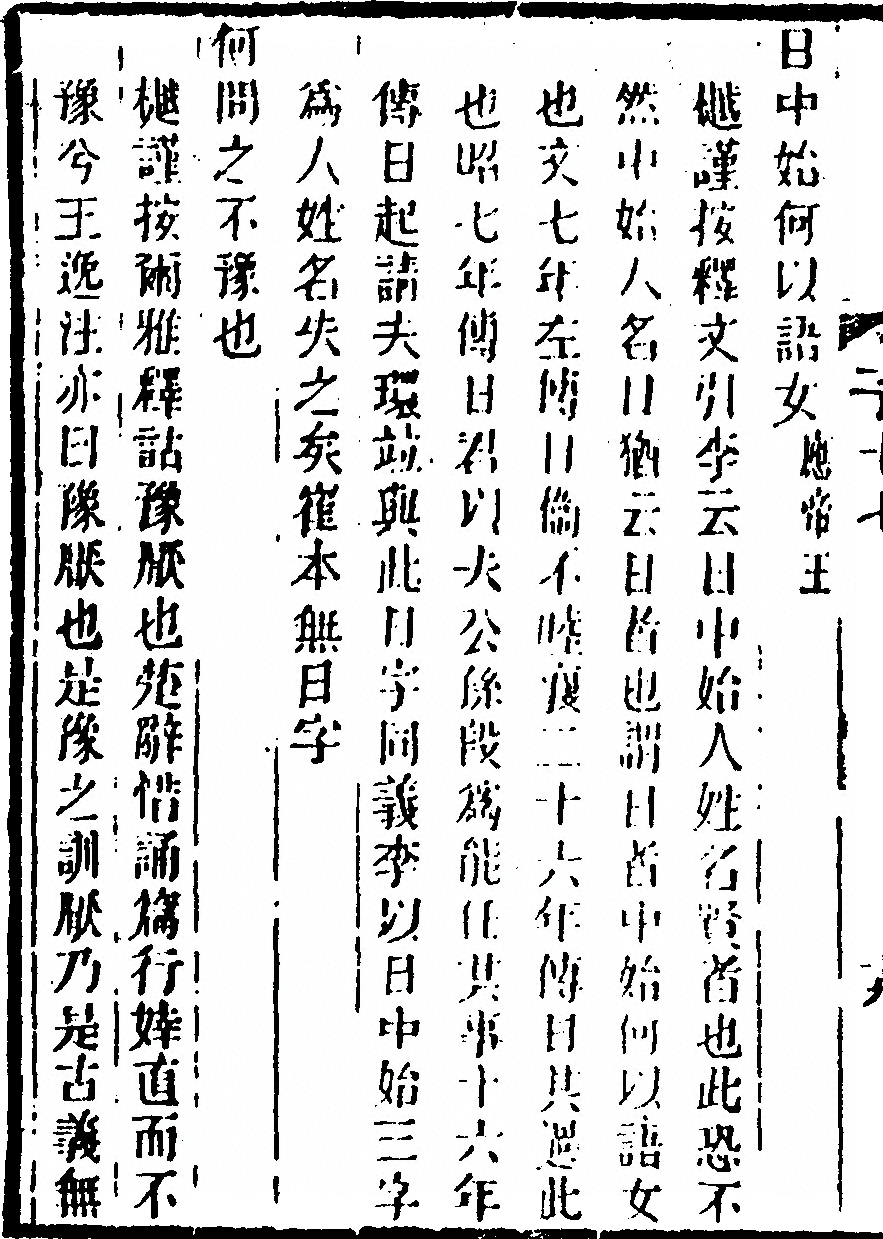 日中始何以語女應帝王
樾謹按釋文引李云日中始人姓名賢者也此恐不
然中始人名日猶云日者也謂日者中始何以語女
也文七年左傳日衞不睦襄二十六年傳日其過此
也昭七年傳日君以夫公孫段為能任其事十六年
傳日起請夫環竝與此日字同義李以日中始三字
為人姓名失之矣崔本無日字
何問之不豫也
樾謹按爾雅釋詁豫厭也楚辭惜誦篇行婞直而不
豫兮王逸注亦曰豫厭也是豫之訓厭乃是古義無